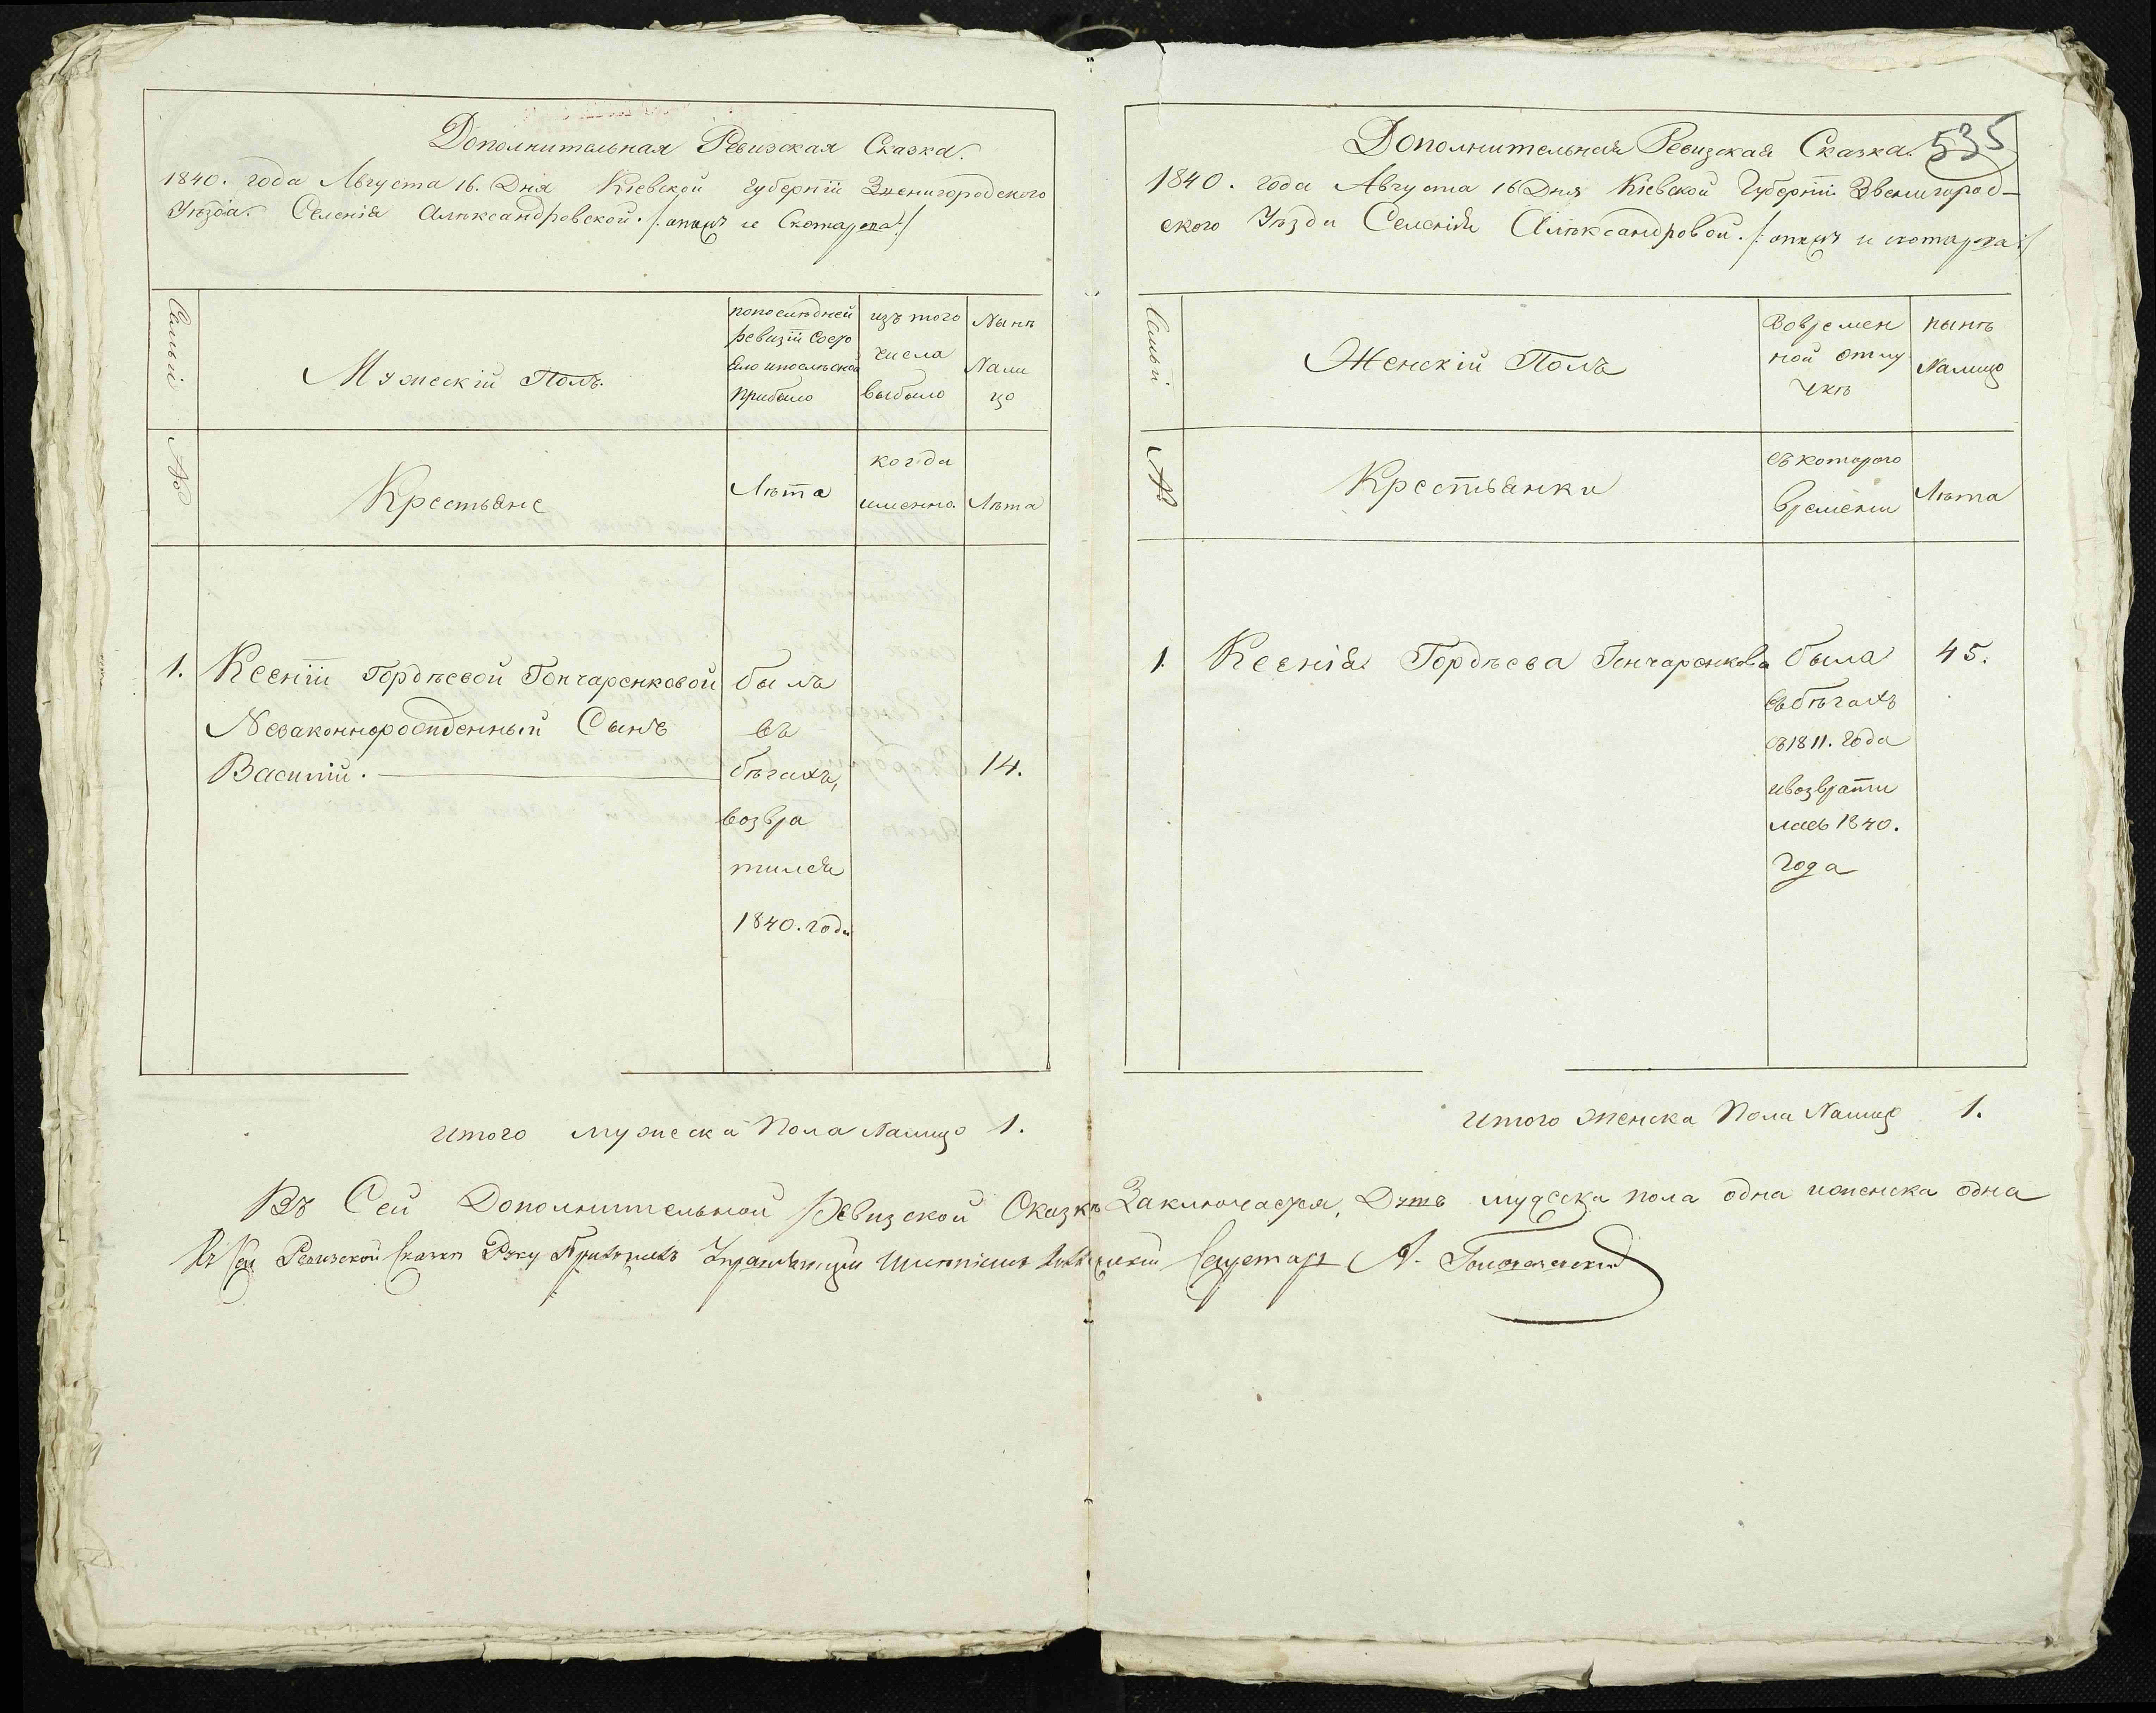 Дополнительная Ревизская Сказка.
1840. года Августа 16. Дня Кіевской Губерніи Звенигородского
Уѣзда. Селенія Алѣксандровской. /: онажъ и Скотарева :/
Семьи
Мужескій Полъ.
попослѣдней
ревизіи Состо
яло ипослѣ оной
прибыло
изъ того
числа
выбыло
Нынѣ
Нали
цо
№
Крестьяне
Лѣта
когда
именно.
Лѣта
1. Ксеніи Гордѣевой Гончаренковой былъ
Незаконнорожденный Сынъ въ
Василій. бѣгахъ, 14.
возвра
тился
1840. года
итого мужеска Пола Налицо 1.
535
Дополнительная Ревизская Сказка.
1840. года Августа 16 Дня Кіевской Губерніи Звенигород-
ского Уѣзда Селенія Алѣксандровой. /: онажъ и скотарева :/
Семьи
Женскій Полъ
Вовремен
ной отлу
чкѣ
нынѣ
Налицо
№
Крестьянки
съ котораго
времени
Лѣта
1. Ксенія Гордѣева Гончаренкова была 45.
въбѣгахъ
съ 1811. года
ивозврати
лась 1840.
года
итого женска Пола Налицо 1.
Въ Сей Дополнительной Ревизской Сказкѣ Заключается, Душъ мужеска пола одна иженска одна
Къ сей Ревизской Сказкѣ Руку Приложилъ Управляющій Имѣніемъ